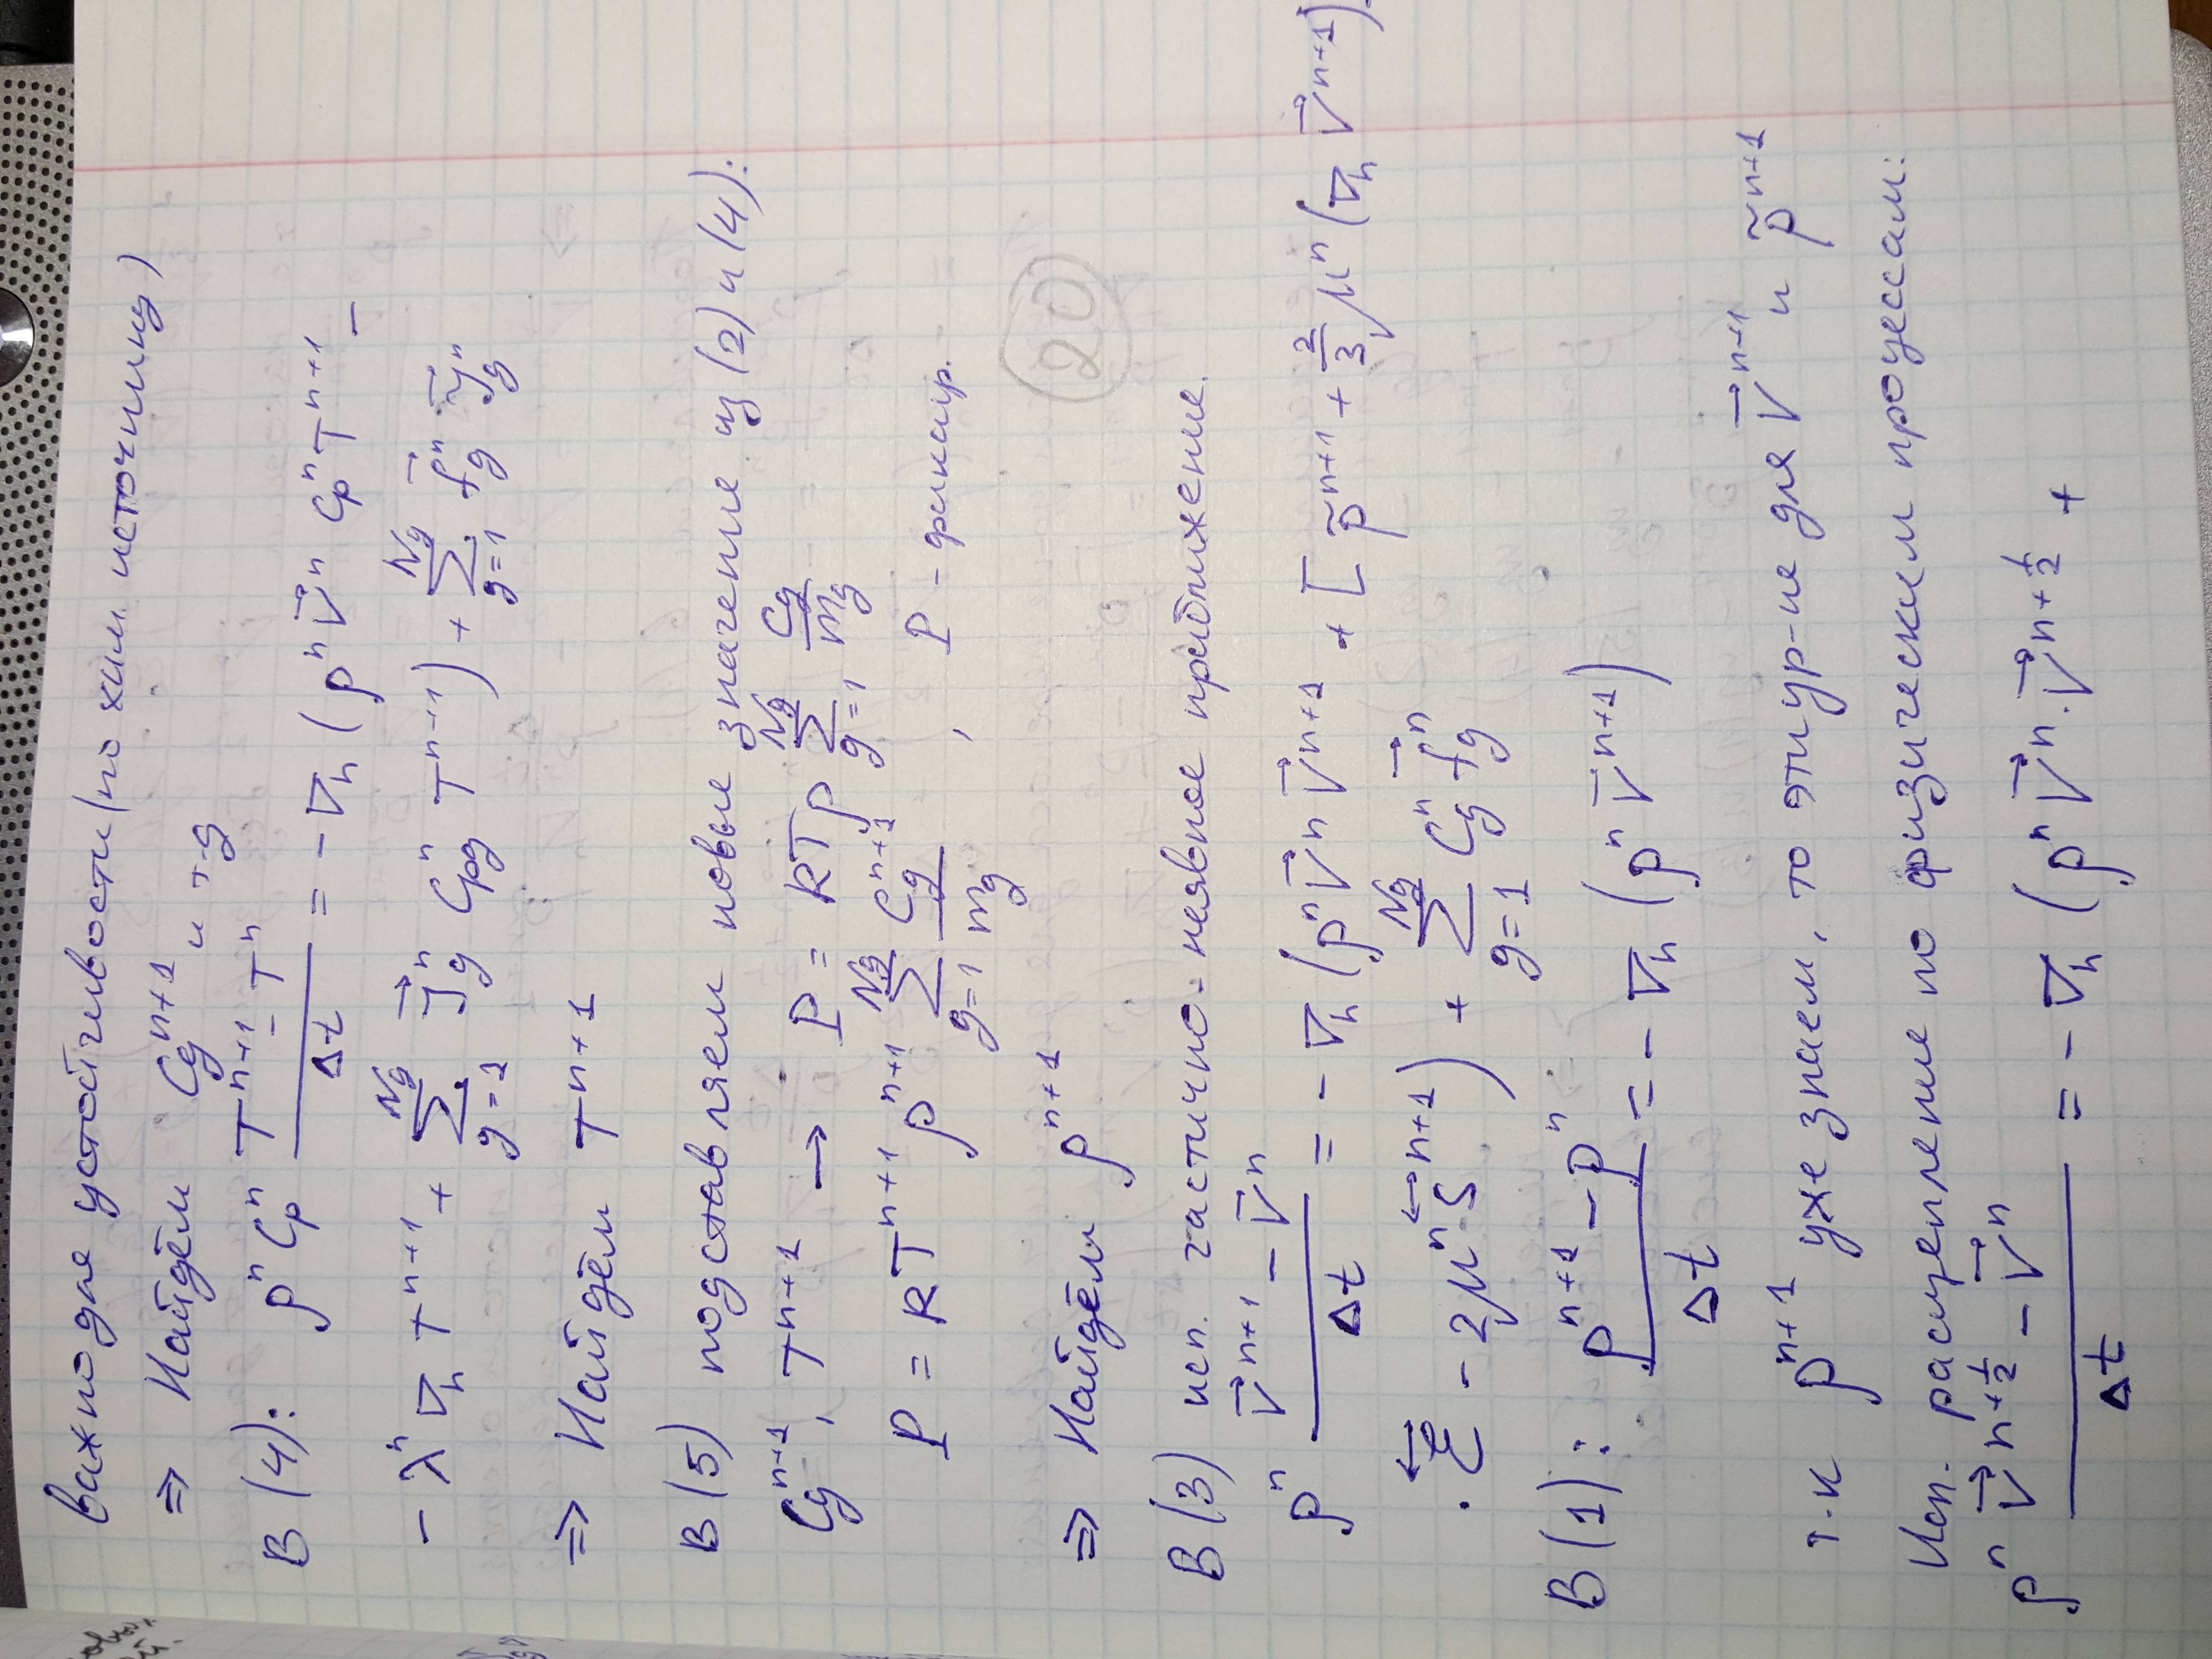 важно для устойчивости (по хим. источнику)
⇒ Найдём C_g^{n+1} и т.д
В (4): ρ^n C_p^n (T^{n+1} - T^n)/Δt = -∇_h (ρ^n V⃗^n C_p^n T^{n+1} -
- λ^n ∇_h T^{n+1} + Σ_{g=1}^{N_g} J⃗_g^n C_{pg}^n T^{n+1}) + Σ_{g=1}^{N_g} f⃗_g^n J⃗_g^n
⇒ Найдём T^{n+1}
В (5) подставляем новые значение из (2) и (4):
C_g^{n+1}, T^{n+1} → P = RTρ Σ_{g=1}^{N_g} C_g/m_g
P = RT^{n+1} ρ^{n+1} Σ_{g=1}^{N_g} C_g^{n+1}/m_g , P - фиксир.
20
⇒ Найдём ρ^{n+1}
В (3) исп. частично-неявное приближение.
ρ^n (V⃗^{n+1} - V⃗^n)/Δt = -∇_h (ρ^n V⃗^n V⃗^{n+1} + [p̃^{n+1} + 2/3 μ^n (∇_h V⃗^{n+1})]
· ℰ⃡ - 2μ^n S⃡^{n+1}) + Σ_{g=1}^{N_g} C_g^n f⃗_g^n
В (1): (ρ^{n+1} - ρ^n)/Δt = -∇_h (ρ^n V⃗^{n+1})
т.к ρ^{n+1} уже знаем, то эти ур-ие для V⃗^{n+1} и p̃^{n+1}
Исп. расщепление по физическим процессам:
ρ^n (V⃗^{n+1/2} - V⃗^n)/Δt = -∇_h (ρ^n V⃗^n · V⃗^{n+1/2} +